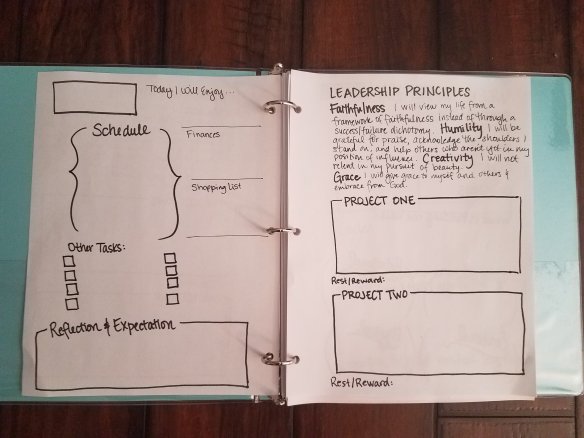 Today I Will Enjoy...
Schedule
Finances
Shopping List
Other Tasks:
Reflection & Expectation
LEADERSHIP PRINCIPLES
Faithfulness I will view my life from a
framework of faithfulness instead of through a
success/failure dichotomy. Humility I will be
grateful for praise, acknowledge the shoulders I
stand on, and help others who aren't yet in my
position of influence. Creativity I will not
relent in my pursuit of beauty.
Grace I will give grace to myself and others &
embrace from God.
PROJECT ONE
Rest/Reward:
PROJECT TWO
Rest/Reward: